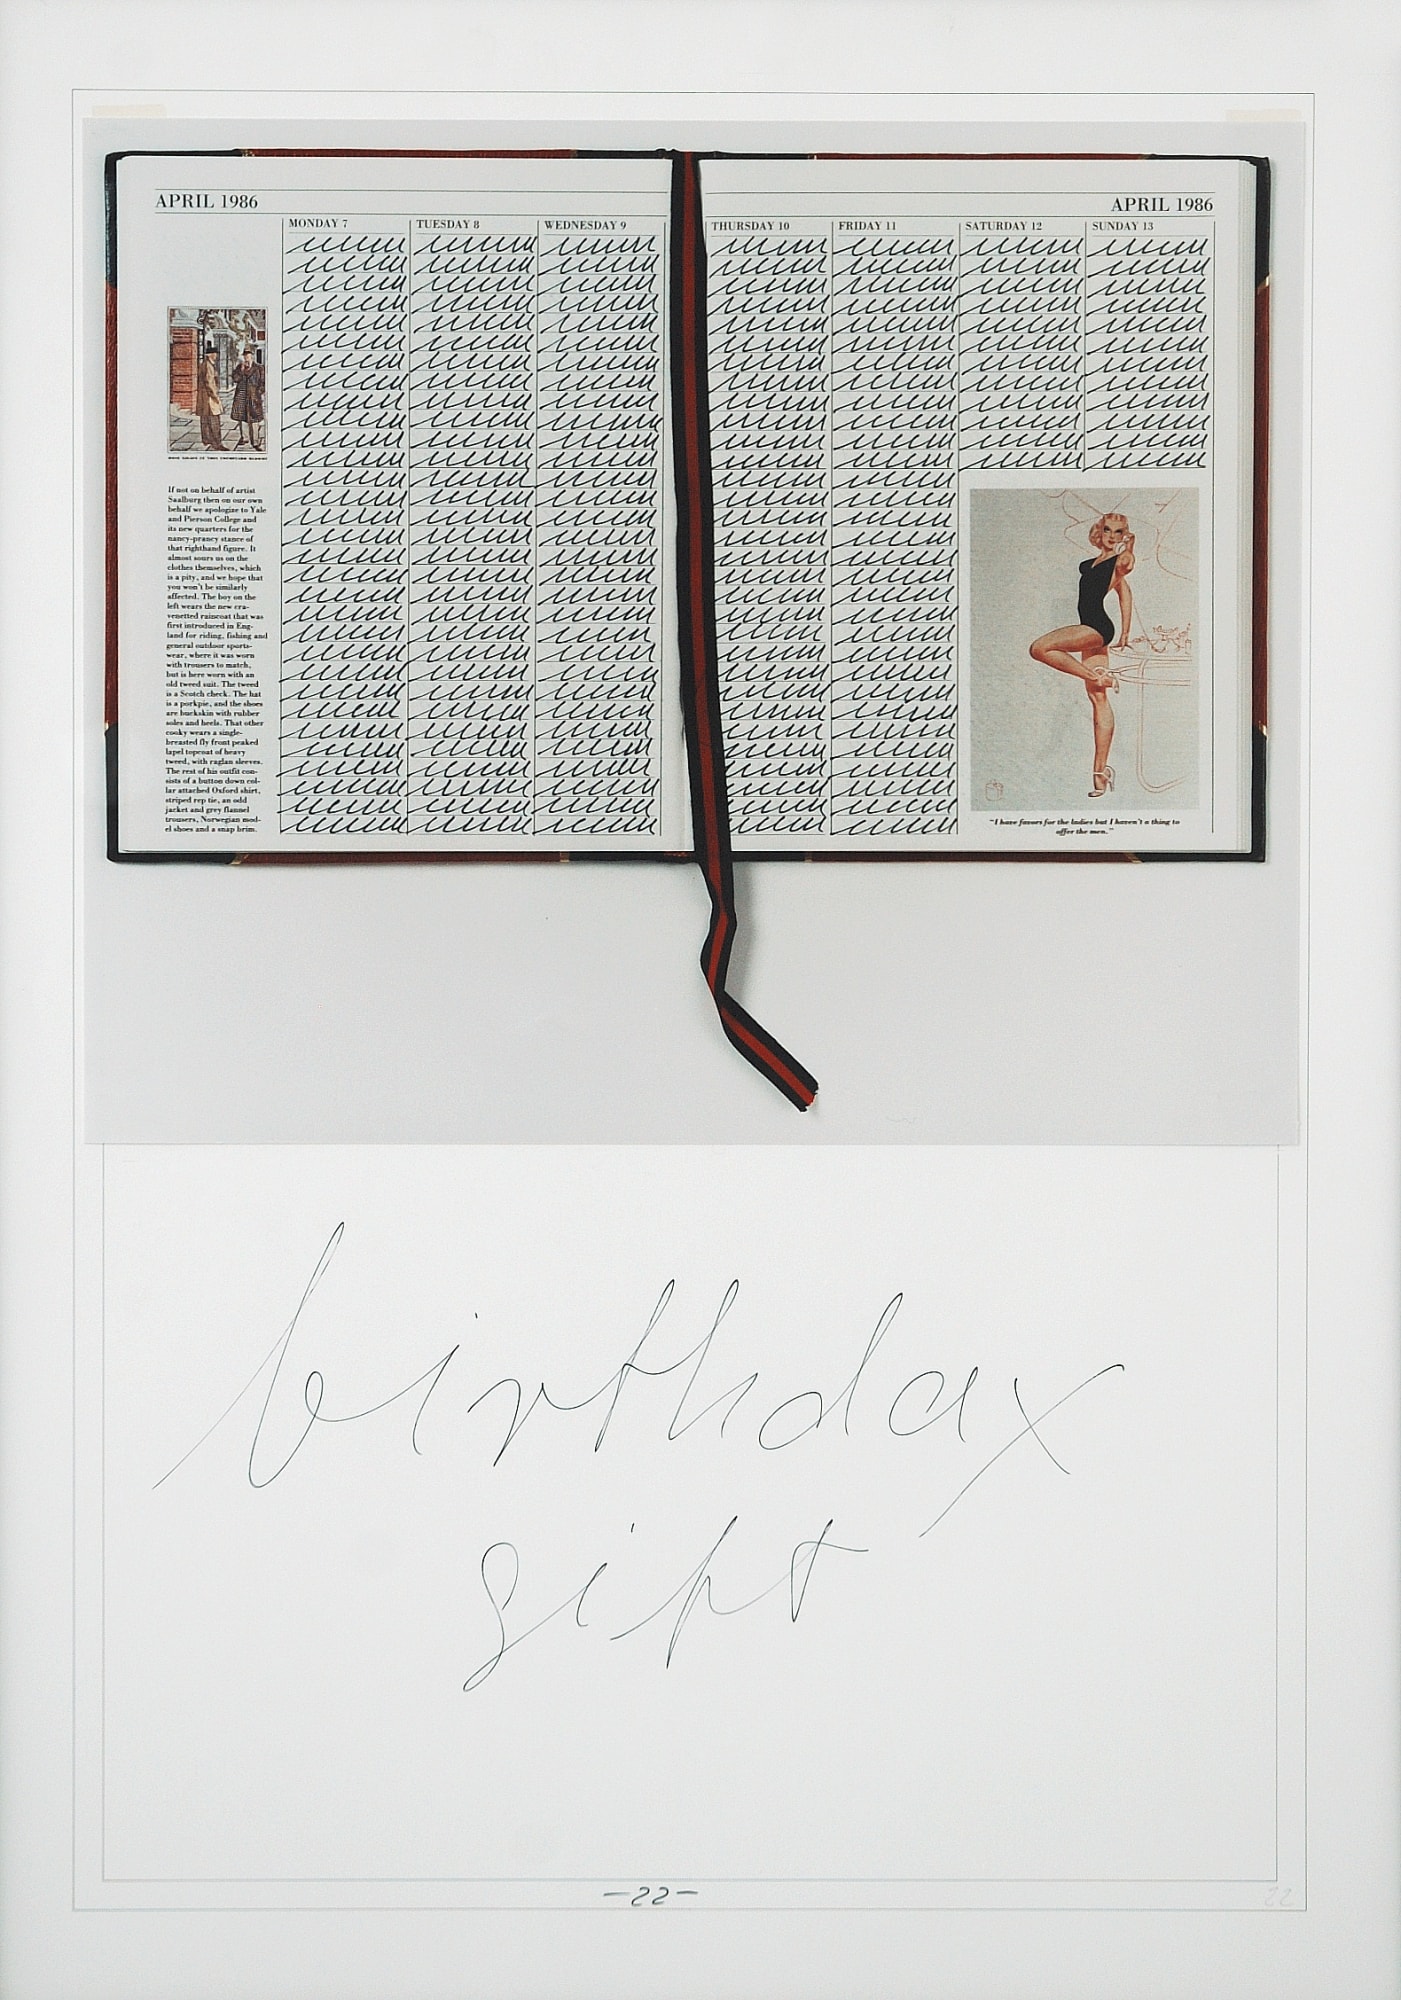 APRIL 1986
MONDAY 7
TUESDAY 8
WEDNESDAY 9
If not on behalf of artist
Saalburg then on our own
behalf we apologize to Yale
and Pierson College and
its new quarters for the
nancy-prancy stance of
that righthand figure. It
almost sours us on the
clothes themselves, which
is a pity, and we hope that
you won't be similarly
affected. The boy on the
left wears the new cra-
venetted raincoat that was
first introduced in Eng-
land for riding, fishing and
general outdoor sports-
wear, where it was worn
with trousers to match,
but is here worn with an
old tweed suit. The tweed
is a Scotch check. The hat
is a porkpie, and the shoes
are buckskin with rubber
soles and heels. That other
cooky wears a single-
breasted fly front peaked
lapel topcoat of heavy
tweed, with raglan sleeves.
The rest of his outfit con-
sists of a button down col-
lar attached Oxford shirt,
striped rep tie, an odd
jacket and grey flannel
trousers, Norwegian mod-
el shoes and a snap brim.
APRIL 1986
THURSDAY 10
FRIDAY 11
SATURDAY 12
SUNDAY 13
"I have favors for the ladies but I haven't a thing to
offer the men."
birthday
gift
-22-
22